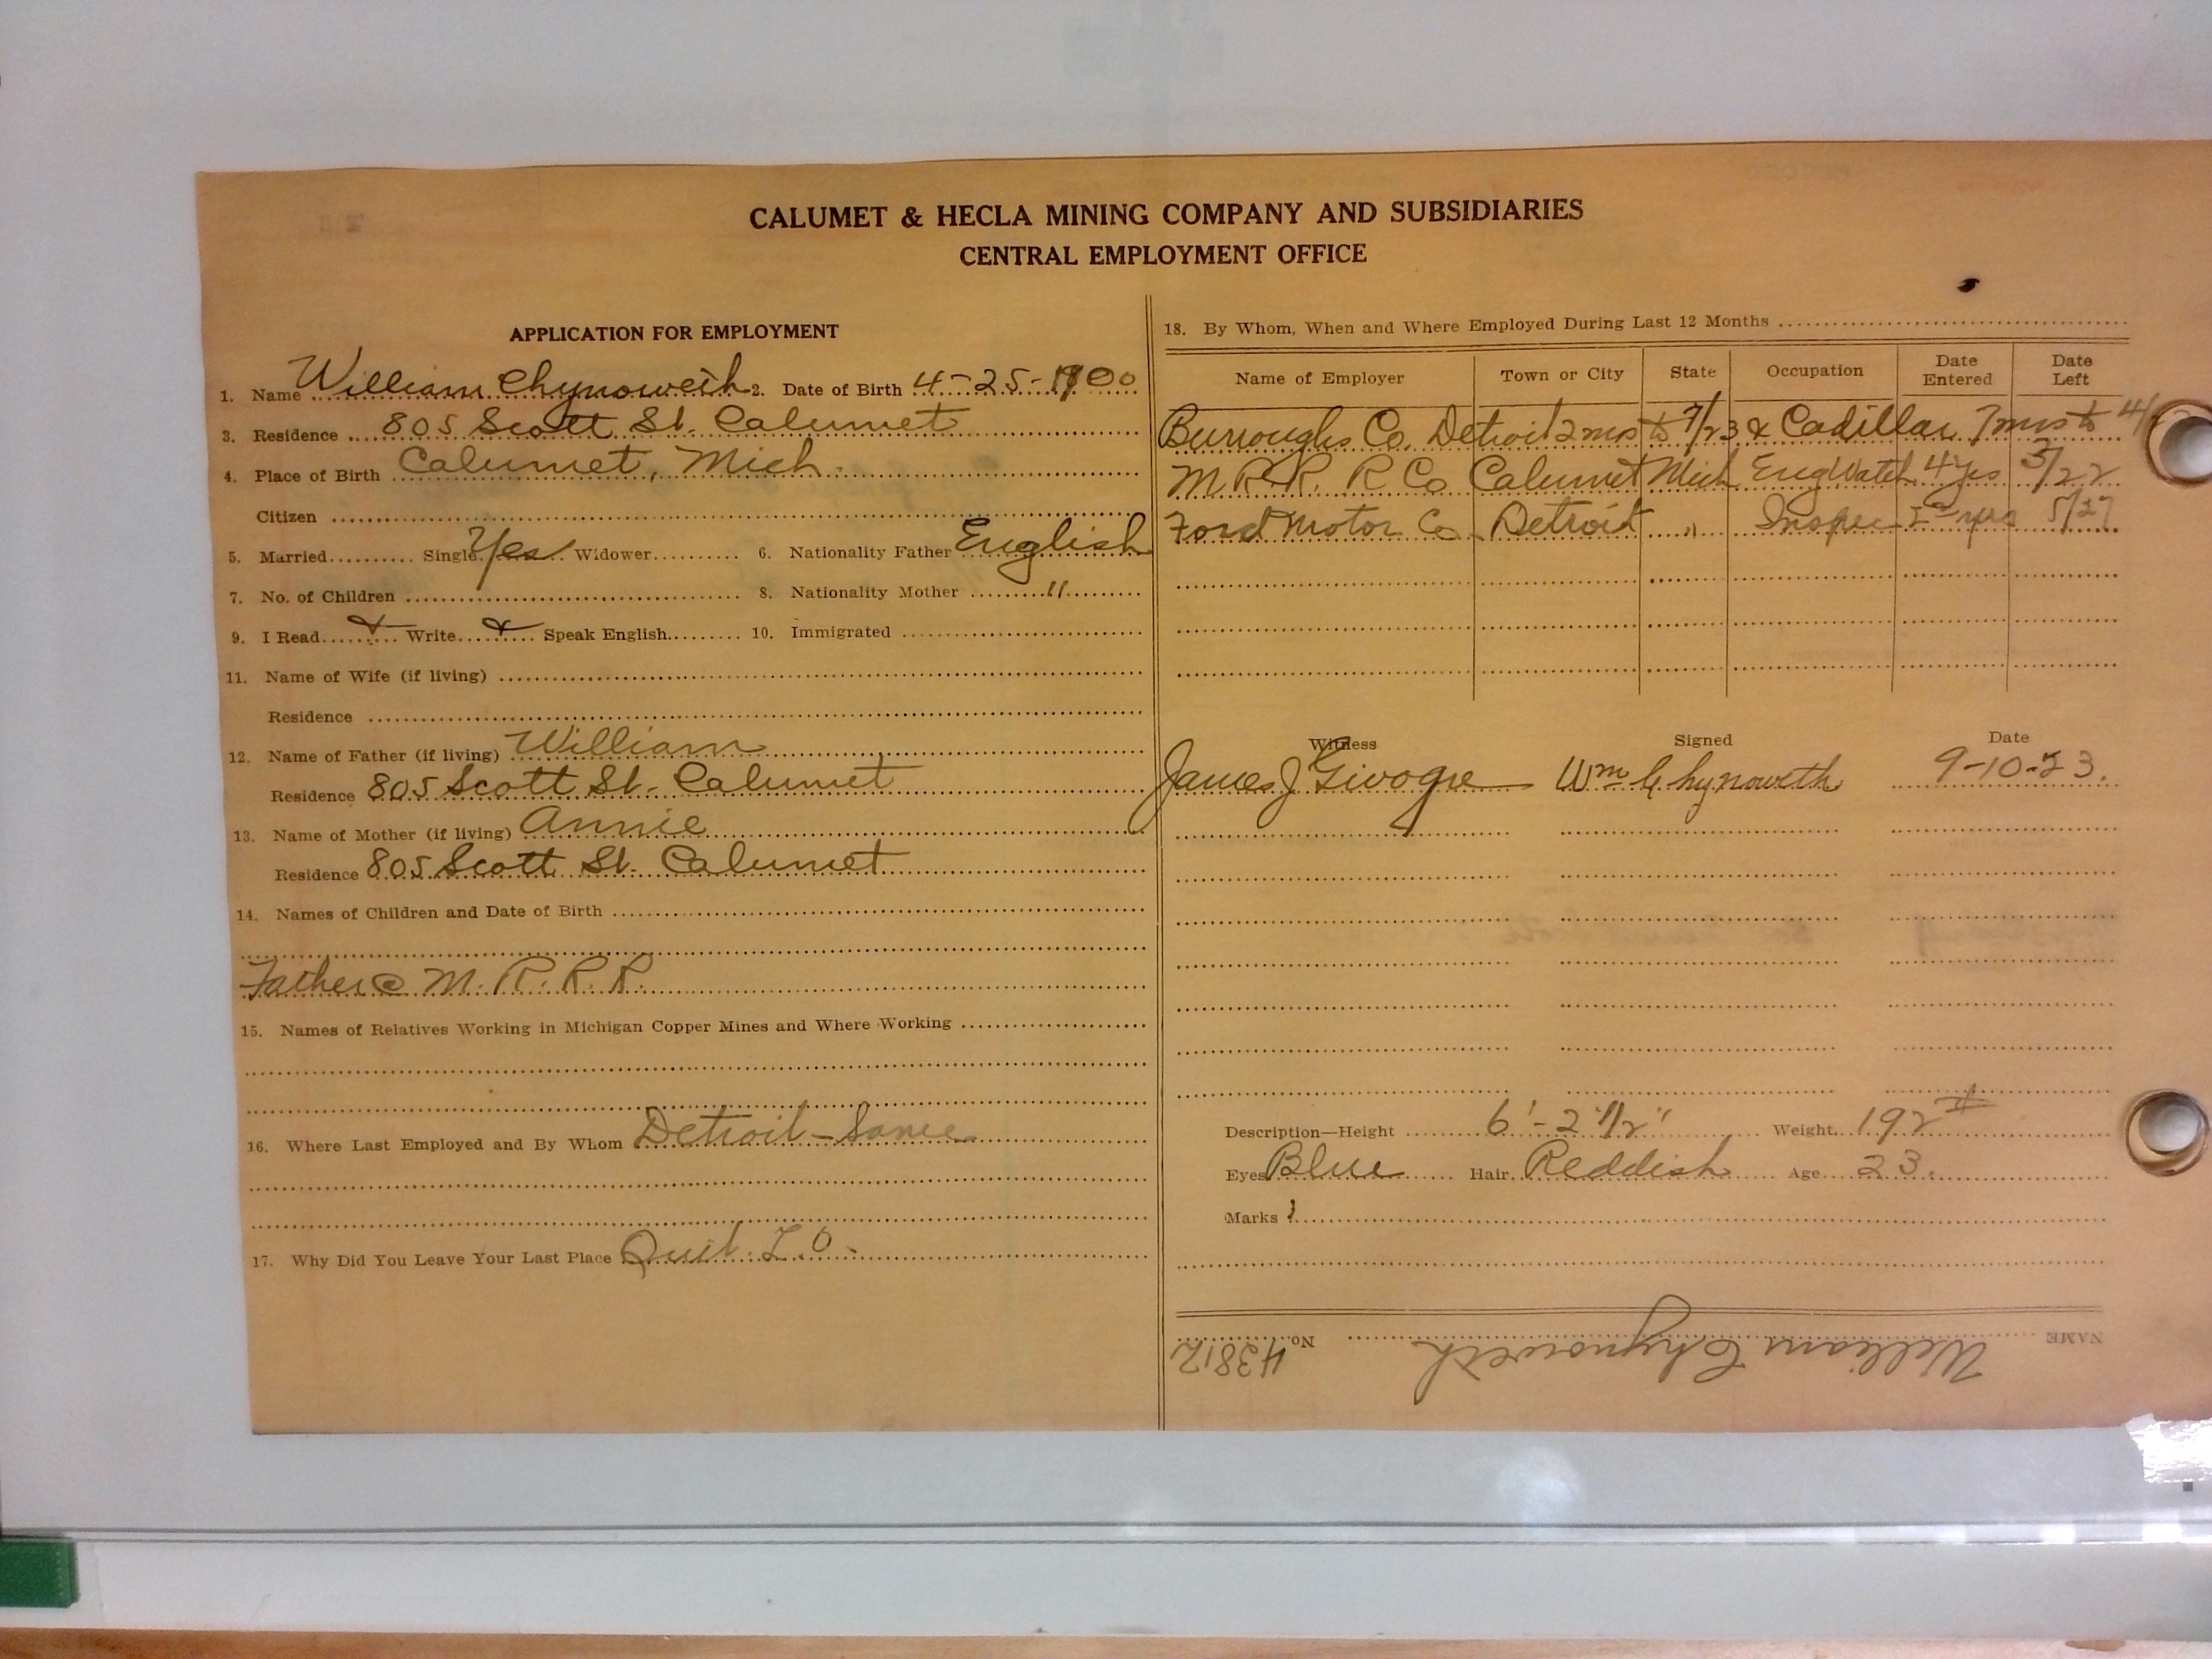 CALUMET & HECLA MINING COMPANY AND SUBSIDIARIES
CENTRAL EMPLOYMENT OFFICE
APPLICATION FOR EMPLOYMENT
1. Name William Chynoweth 2. Date of Birth 4-25-1900
3. Residence 805 Scott St. Calumet
4. Place of Birth Calumet, Mich.
Citizen
5. Married Single Yes Widower 6. Nationality Father English
7. No. of Children 8. Nationality Mother "
9. I Read Write Speak English 10. Immigrated
11. Name of Wife (if living)
Residence
12. Name of Father (if living) William
Residence 805 Scott St. Calumet
13. Name of Mother (if living) Annie
Residence 805 Scott St. Calumet
14. Names of Children and Date of Birth
Father @ M. R. R. R.
15. Names of Relatives Working in Michigan Copper Mines and Where Working
16. Where Last Employed and By Whom Detroit - Same
17. Why Did You Leave Your Last Place Quit
18. By Whom, When and Where Employed During Last 12 Months
Name of Employer Town or City State Occupation Date Entered Date Left
Burroughs Co. Detroit 2 mos to 9/23 & Cadillac 7 mos to 4/
M. R. R. R Co Calumet Mich Eng Watch 4 yrs 3/22
Ford Motor Co Detroit " Inspec yrs 5/27
Witness Signed Date
James J Wm Chynoweth 9-10-23.
Description—Height 6'-2 1/2" Weight 192 #
Eyes Blue Hair Reddish Age 23.
Marks
NAME William Chynoweth No. 43812